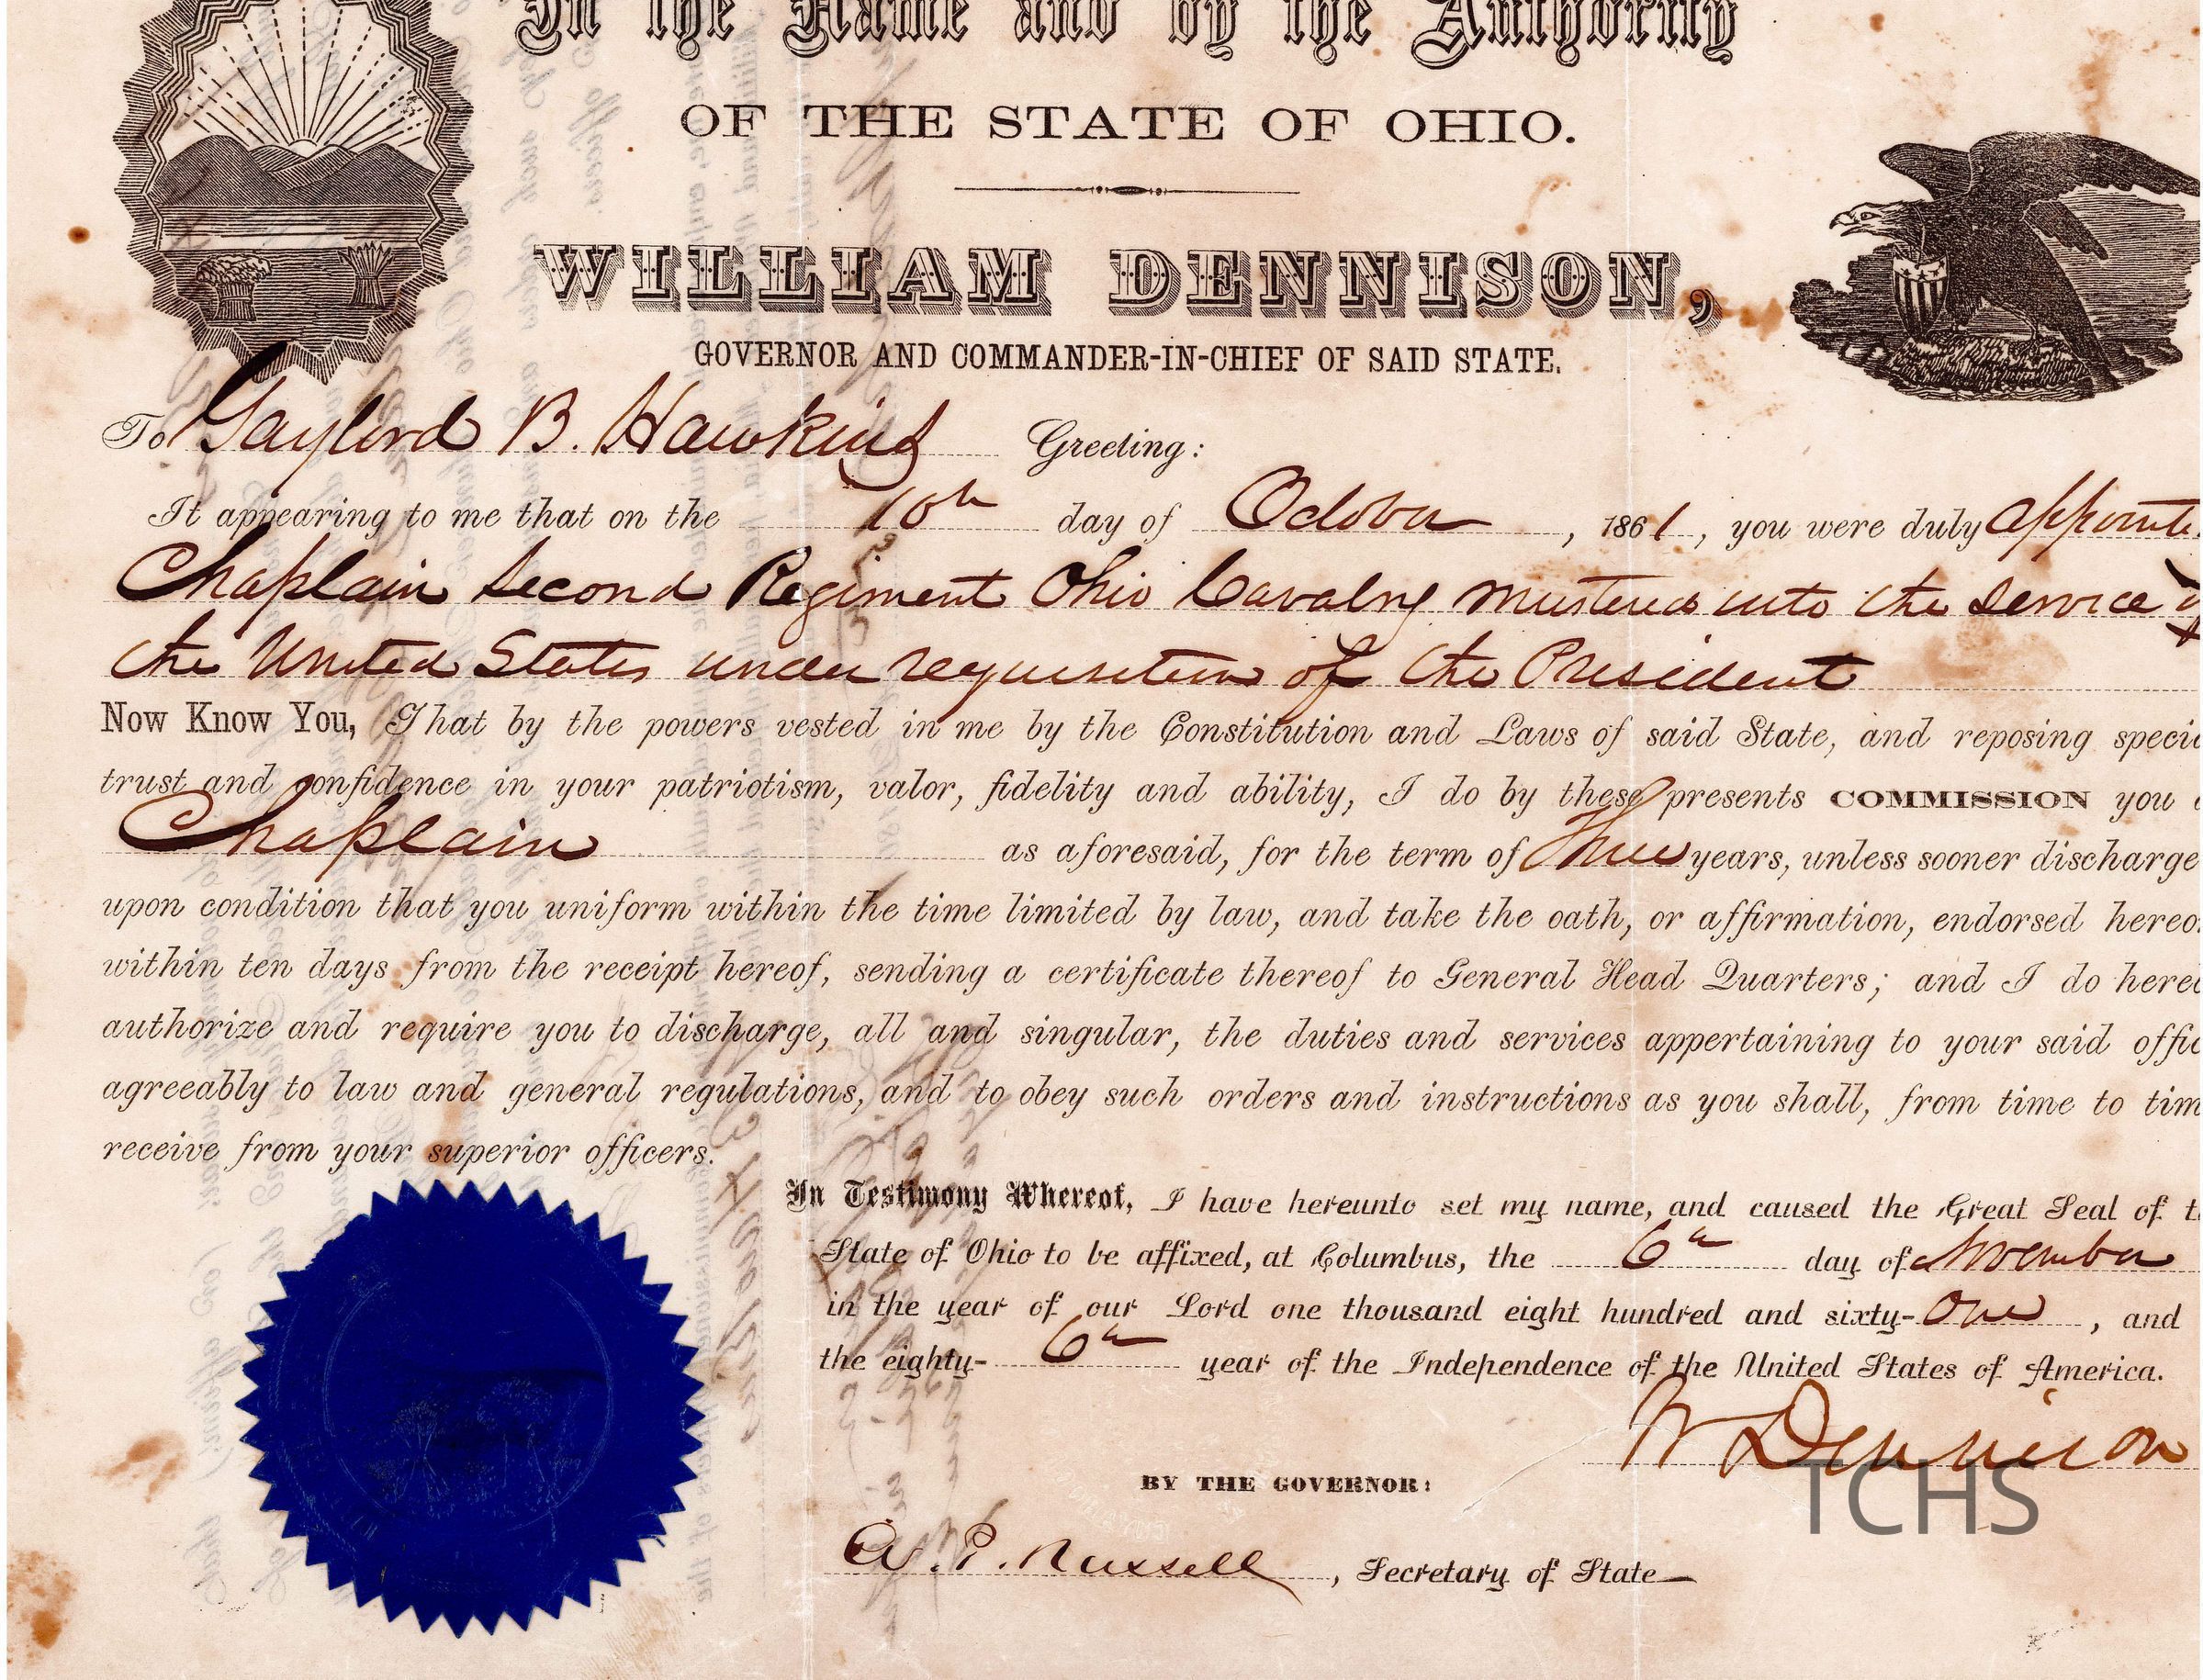 In the Name and by the Authority
OF THE STATE OF OHIO.
WILLIAM DENNISON,
GOVERNOR AND COMMANDER-IN-CHIEF OF SAID STATE.
To Gaylord B. Hawkins Greeting:
It appearing to me that on the 10th day of October, 1861, you were duly appointe
Chaplain Second Regiment Ohio Cavalry mustered into the service of
the United States under requisition of the President
Now Know You, That by the powers vested in me by the Constitution and Laws of said State, and reposing speci
trust and confidence in your patriotism, valor, fidelity and ability, I do by these presents COMMISSION you
Chaplain as aforesaid, for the term of Three years, unless sooner discharge
upon condition that you uniform within the time limited by law, and take the oath, or affirmation, endorsed hereo
within ten days from the receipt hereof, sending a certificate thereof to General Head Quarters; and I do here
authorize and require you to discharge, all and singular, the duties and services appertaining to your said offic
agreeably to law and general regulations, and to obey such orders and instructions as you shall, from time to tim
receive from your superior officers.
In Testimony Whereof, I have hereunto set my name, and caused the Great Seal of t
State of Ohio to be affixed, at Columbus, the 6th day of November
in the year of our Lord one thousand eight hundred and sixty-One, and
the eighty-6th year of the Independence of the United States of America.
W Dennison
TCHS
BY THE GOVERNOR:
A. P. Russell, Secretary of State